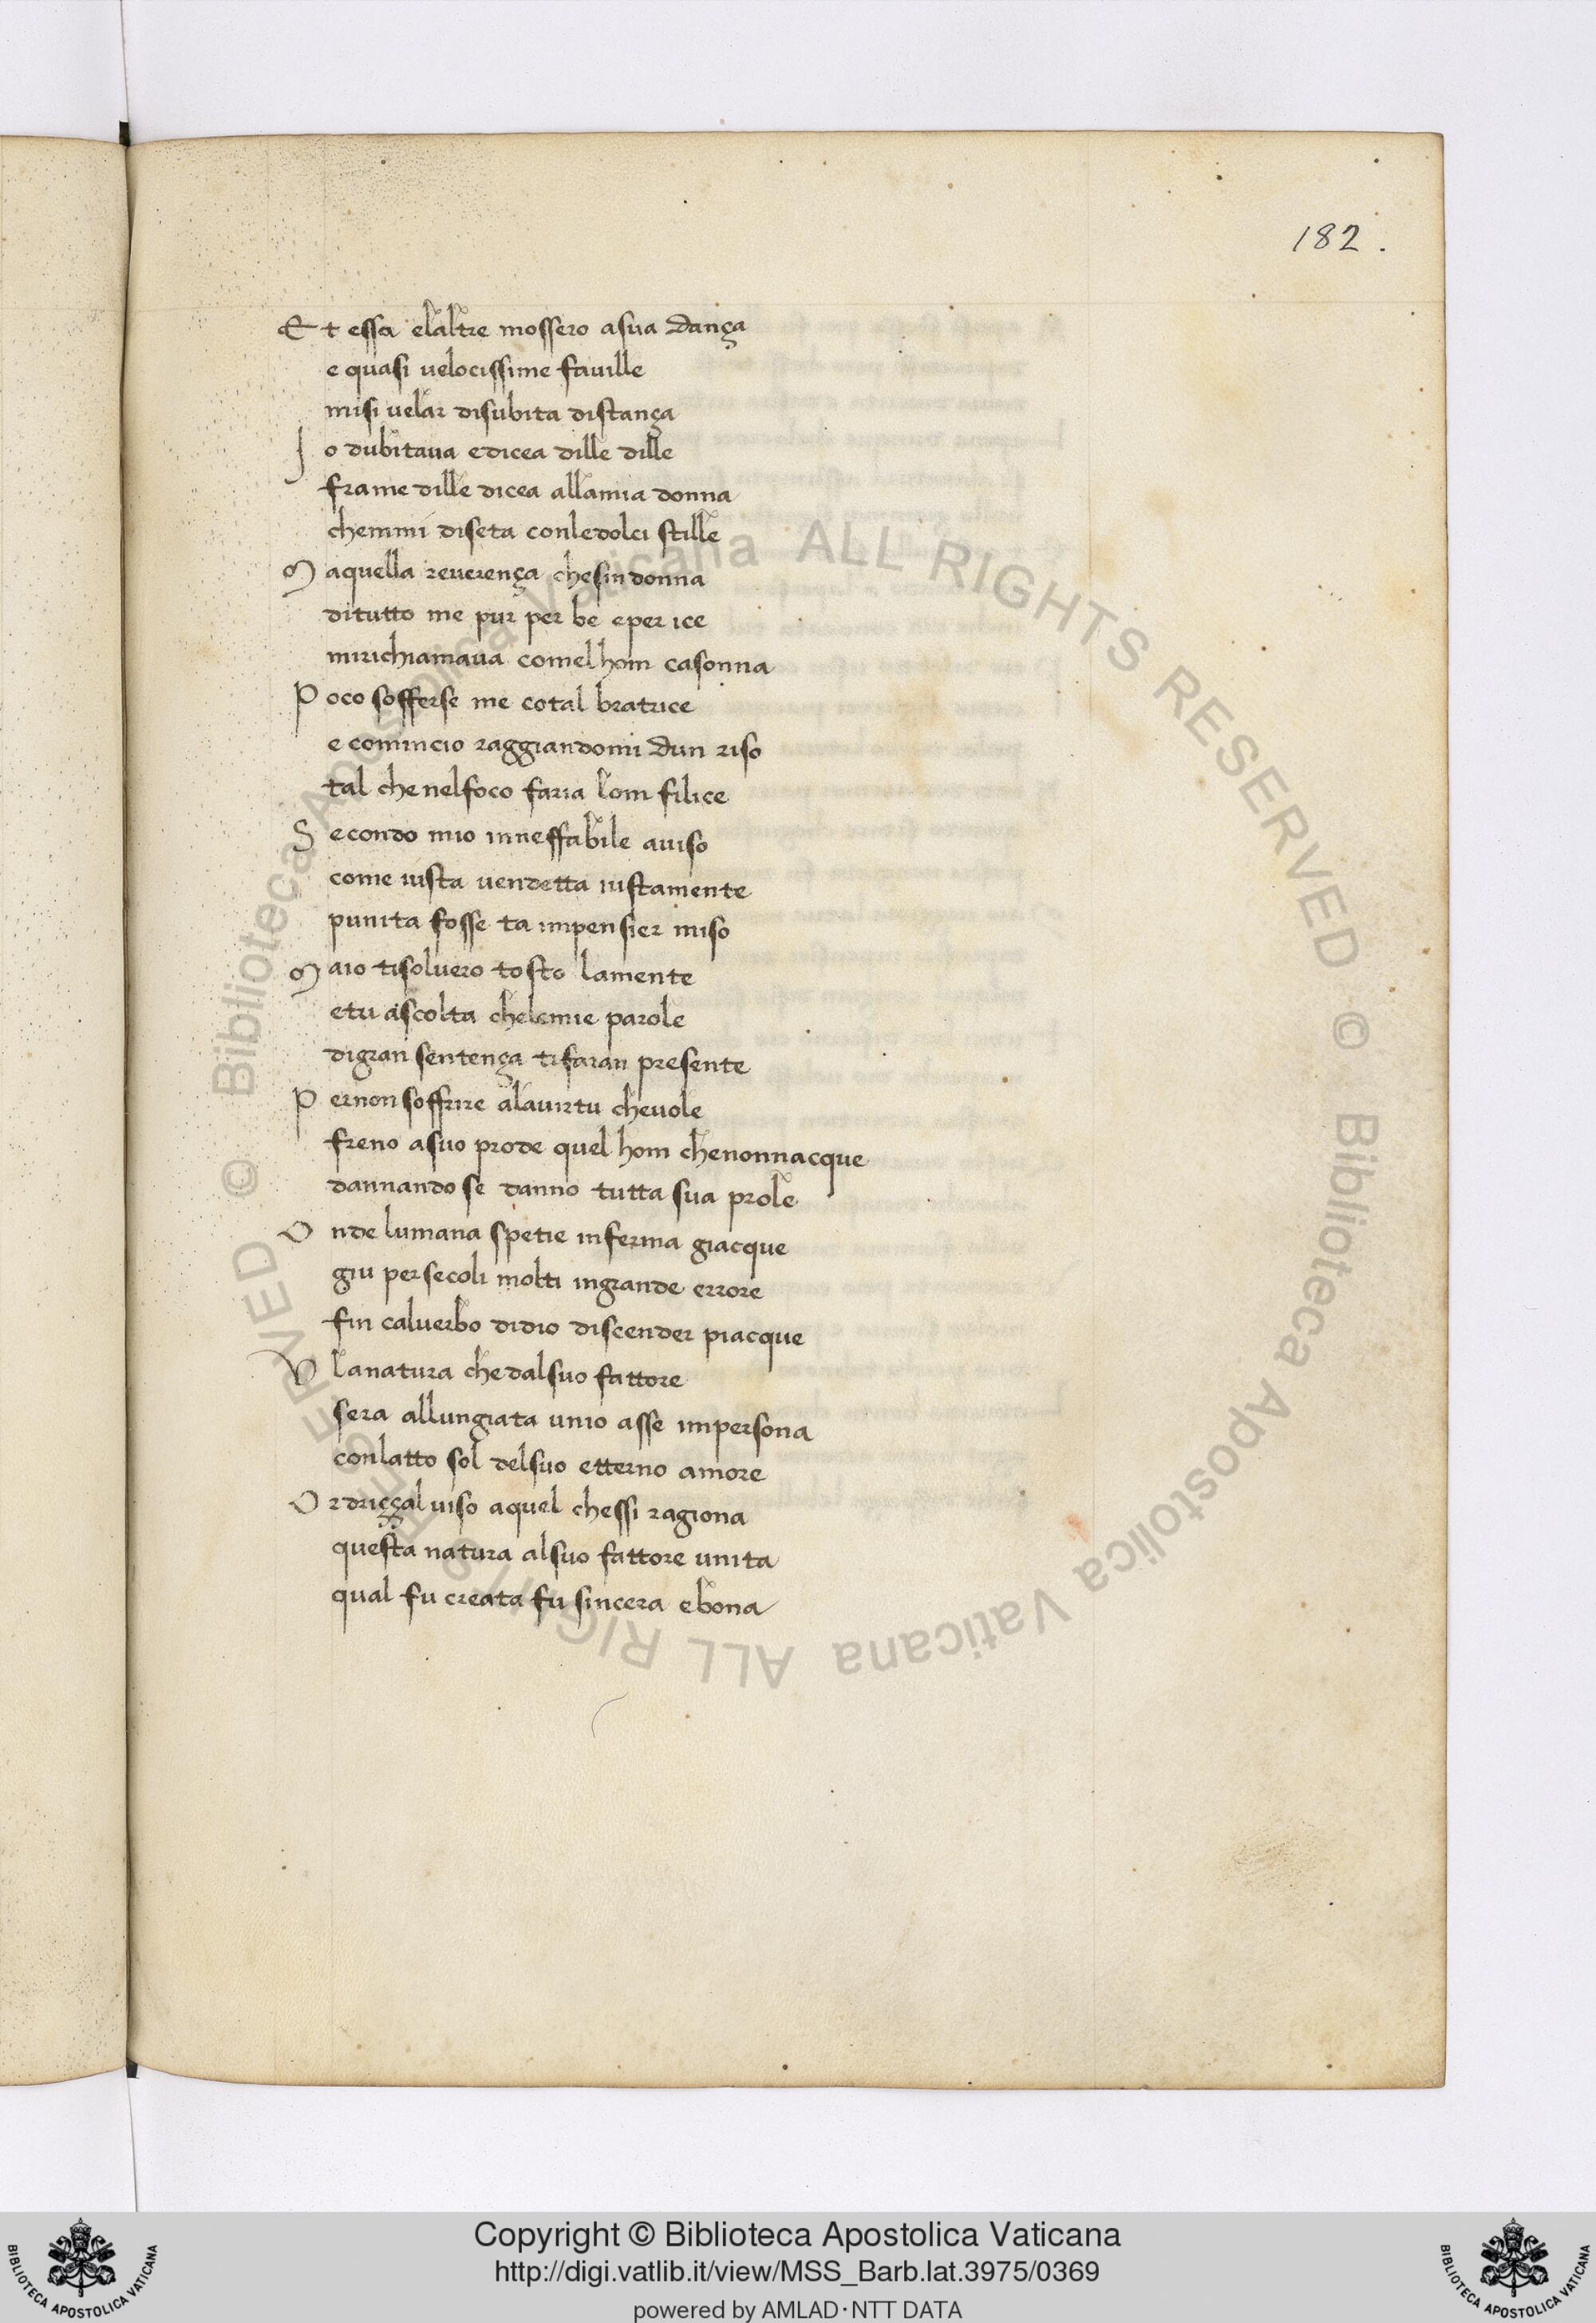 182.
Et essa elaltre mossero asua dança
e quasi velocissime fauille
misi uelar disubita distança
Io dubitaua edicea dille dille
frame dille dicea allamia donna
chemmi diseta conledolci stille
Maquella reuerença chesindonna
ditutto me pur per be eper ice
mirichiamaua comelhom casonna
Poco sofferse me cotal bratrice
e comincio raggiandomi dun riso
tal chenelfoco faria lom filice
Secondo mio inneffabile auiso
come iusta uendetta iustamente
punita fosse ta inpensier miso
Maio tisoluero tosto lamente
etu ascolta chelemie parole
digran sentença tifaran presente
Pernonsoffrire alauirtu cheuole
freno asuo prode quel hom chenonnacque
dannando se danno tutta sua prole
Onde lumana spetie inferma giacque
giu persecoli molti ingrande errore
fin caluerbo didio discender piacque
V lanatura chedalsuo fattore
sera allungiata unio asse inpersona
conlatto sol delsuo etterno amore
Ordriççal uiso aquel chessi ragiona
questa natura alsuo fattore unita
qual fu creata fu sincera ebona
© Biblioteca Apostolica Vaticana ALL RIGHTS RESERVED
© Biblioteca Apostolica Vaticana ALL RIGHTS RESERVED
BIBLIOTECA APOSTOLICA VATICANA
Copyright © Biblioteca Apostolica Vaticana
http://digi.vatlib.it/view/MSS_Barb.lat.3975/0369
powered by AMLAD·NTT DATA
BIBLIOTECA APOSTOLICA VATICANA